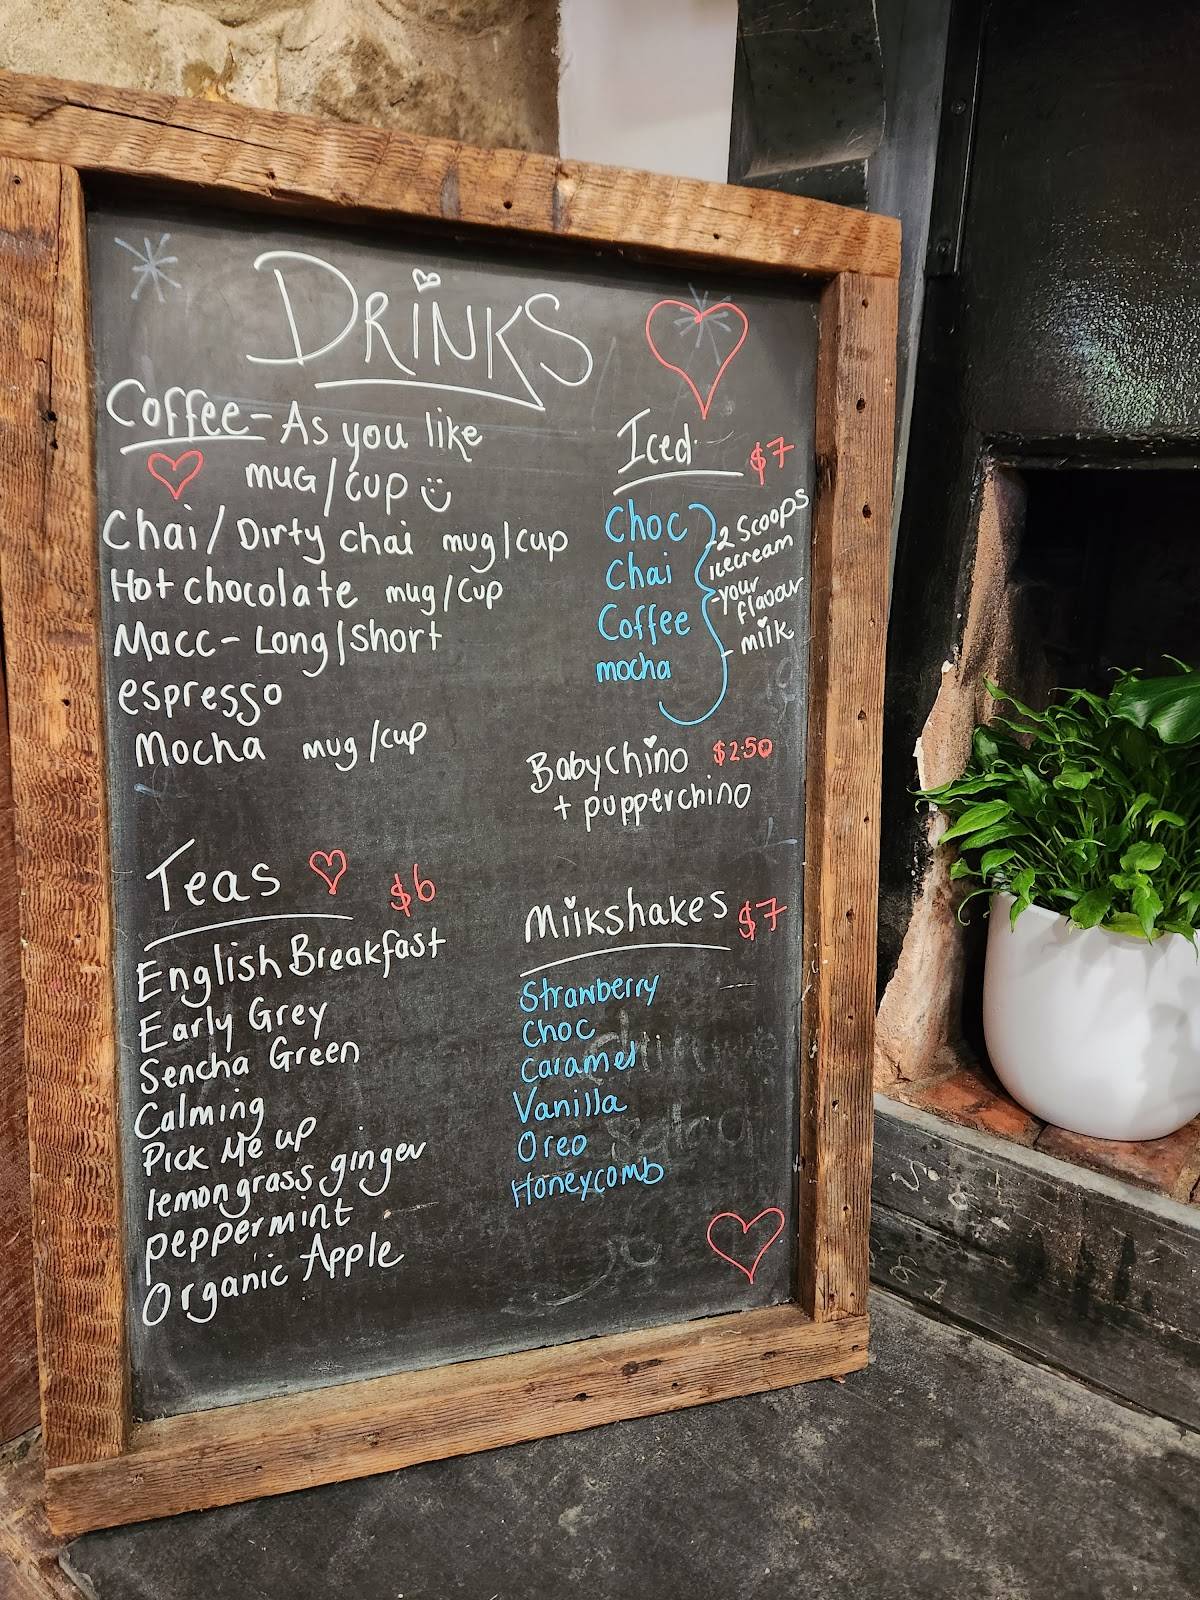 DRiNKS
Coffee - As you like
mug/cup
Chai/Dirty chai mug/cup
Hot chocolate mug/cup
Macc - Long/Short
espresso
Mocha mug/cup
Teas $6
English Breakfast
Early Grey
Sencha Green
Calming
Pick Me up
lemongrass ginger
peppermint
Organic Apple
Iced $7
Choc
Chai
Coffee
mocha
-2 Scoops
icecream
-your
flavour
- milk
BabyChino $2.50
+ pupperchino
Milkshakes $7
Strawberry
Choc
Caramel
Vanilla
Oreo
Honeycomb